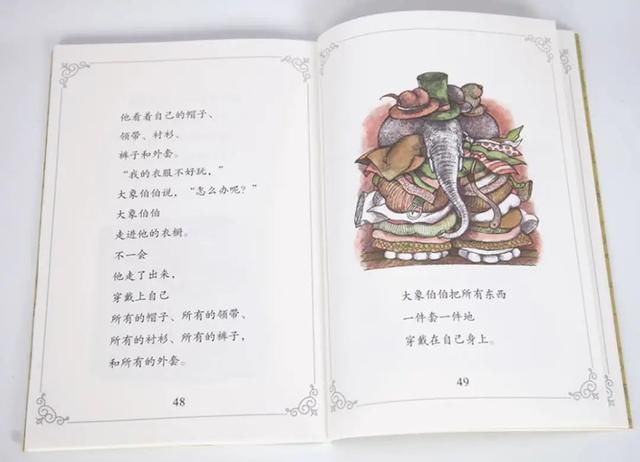 他看着自己的帽子、
领带、衬衫、
裤子和外套。
“我的衣服不好玩，”
大象伯伯说，“怎么办呢？”
大象伯伯
走进他的衣橱。
不一会
他走了出来，
穿戴上自己
所有的帽子、所有的领带、
所有的衬衫、所有的裤子，
和所有的外套。
48
大象伯伯把所有东西
一件套一件地
穿戴在自己身上。
49